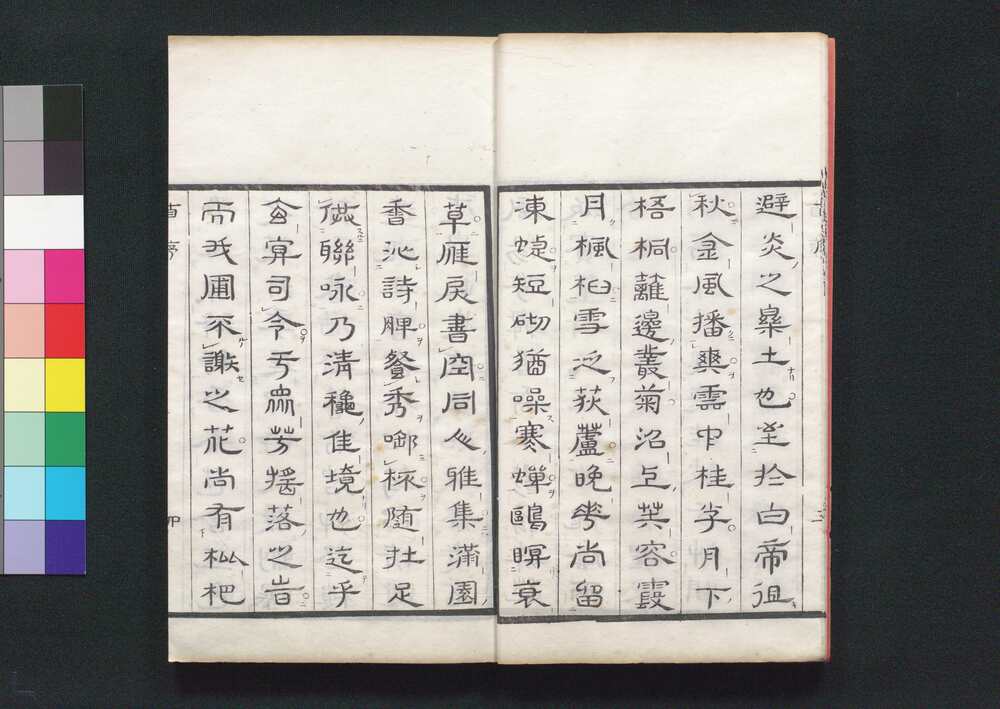 避炎之樂土也至於白帝徂
秋金風播爽雲中桂子月下
梧桐蘿邊叢菊沼上芙容霞
月楓桕雪之荻蘆晩華尚留
凍蜨短砌猶噪寒蟬鷗暝衰
草雁戾書空同心雅集滿園
香沁詩脾餐秀啣杯隨在足
供聯咏乃清穐佳境也迄乎
玄冥司令千衆芳搖落之旹
而我圃不謝之花尚有松杷